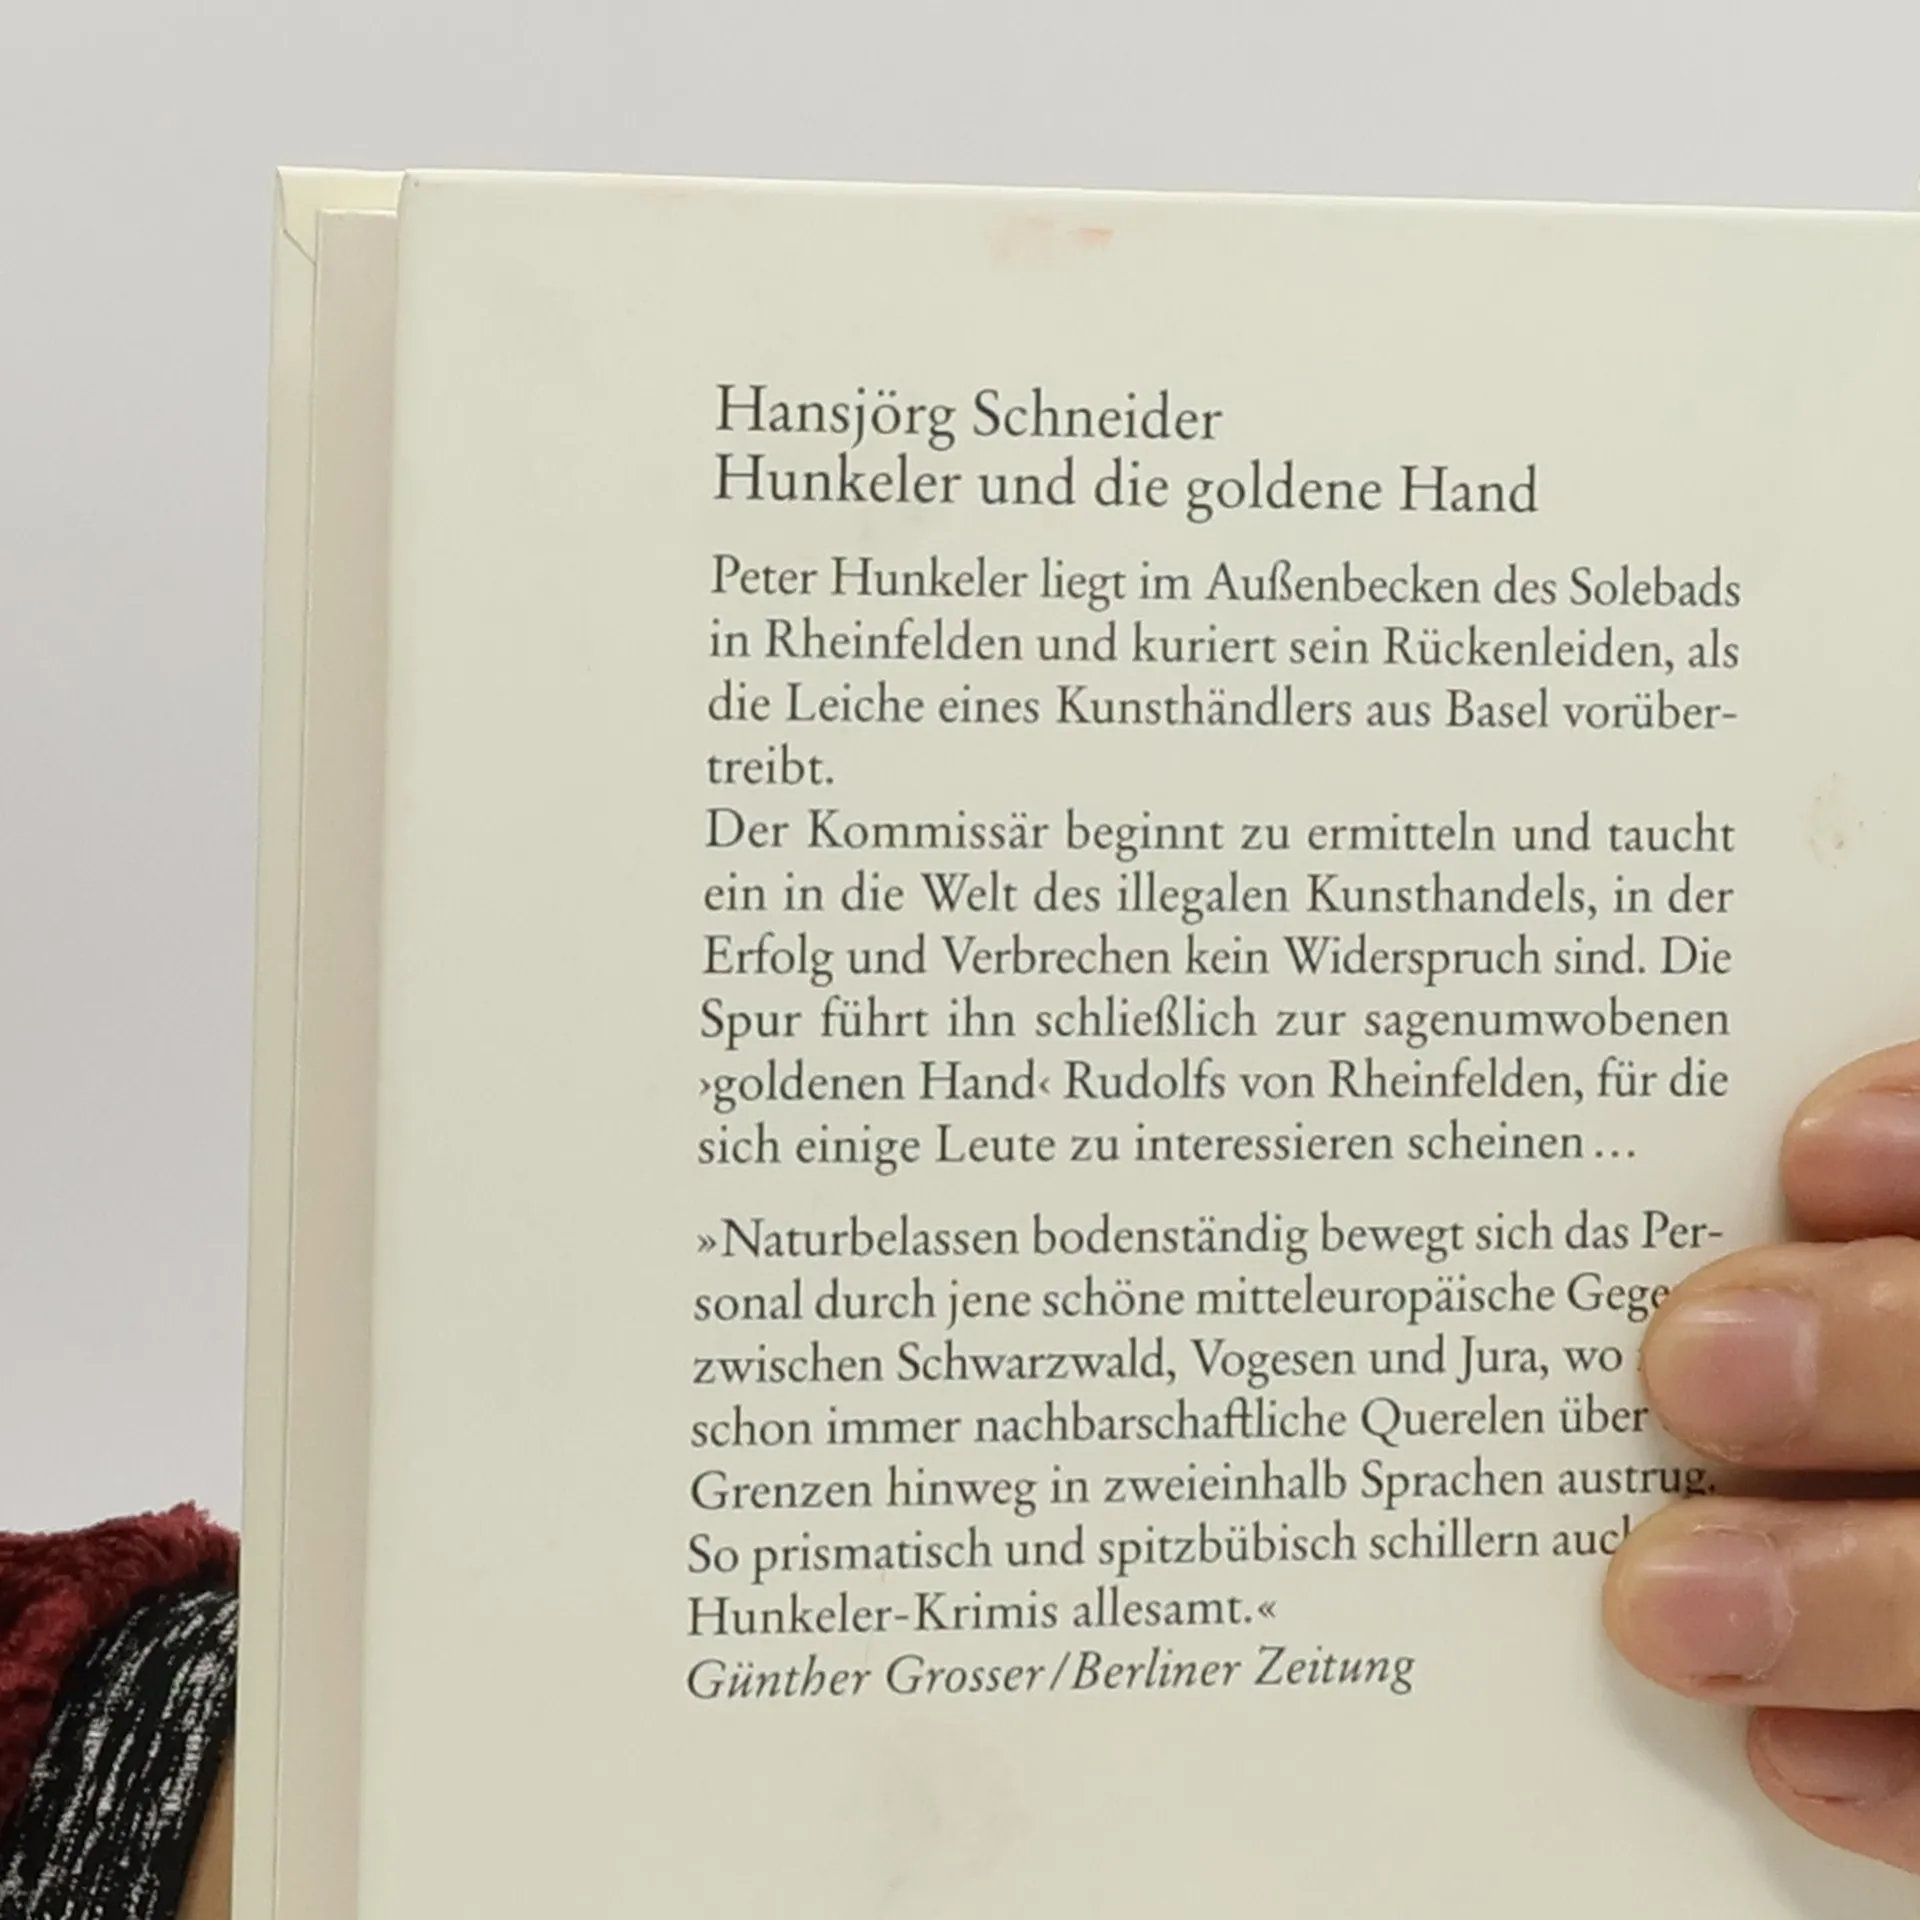 Hansjörg Schneider
Hunkeler und die goldene Hand
Peter Hunkeler liegt im Außenbecken des Solebads
in Rheinfelden und kuriert sein Rückenleiden, als
die Leiche eines Kunsthändlers aus Basel vorüber-
treibt.
Der Kommissär beginnt zu ermitteln und taucht
ein in die Welt des illegalen Kunsthandels, in der
Erfolg und Verbrechen kein Widerspruch sind. Die
Spur führt ihn schließlich zur sagenumwobenen
›goldenen Hand‹ Rudolfs von Rheinfelden, für die
sich einige Leute zu interessieren scheinen…
»Naturbelassen bodenständig bewegt sich das Per-
sonal durch jene schöne mitteleuropäische
zwischen Schwarzwald, Vogesen und Jura, wo
schon immer nachbarschaftliche Querelen über
Grenzen hinweg in zweieinhalb Sprachen austrug.
So prismatisch und spitzbübisch schillern
Hunkeler-Krimis allesamt.«
Günther Grosser/Berliner Zeitung